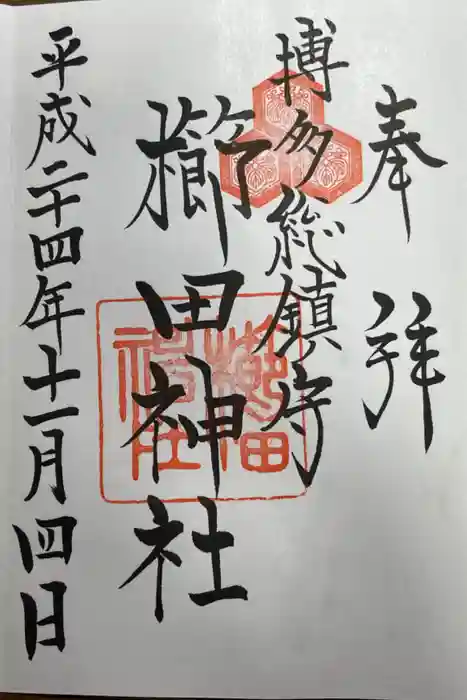 奉拝
博多総鎮守
櫛田神社
平成二十四年十一月四日
櫛田神社